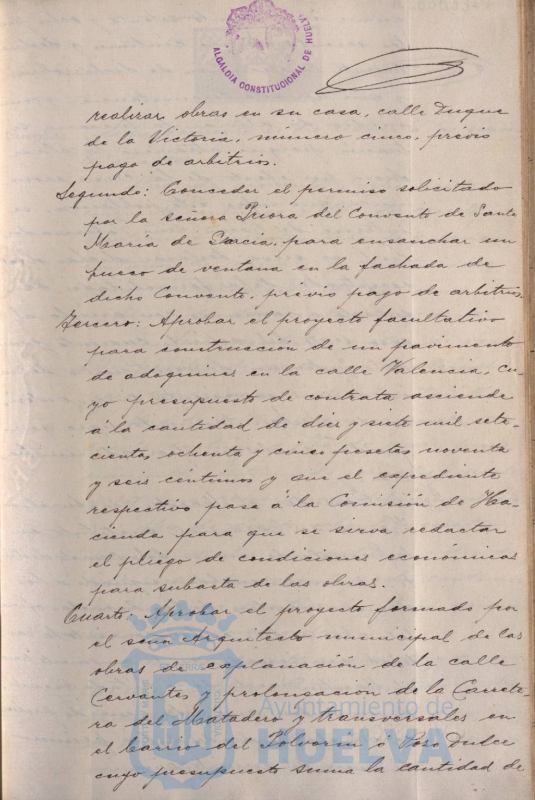 ALCALDIA CONSTITUCIONAL DE HUELV
realizar obras en su casa, calle Duque
de la Victoria, número cinco, prévio
pago de arbitrios.
Segundo: Conceder el permiso solicitado
por la señora Priora del Convento de Santa
María de Gracia, para ensanchar un
hueco de ventana en la fachada de
dicho Convento, prévio pago de arbitrios.
Tercero: Aprobar el proyecto facultativo
para construcción de un pavimento
de adoquines en la calle Valencia, cu-
yo presupuesto de contrata asciende
á la cantidad de diez y siete mil sete-
cientas ochenta y cinco pesetas noventa
y seis céntimos y que el expediente
respectivo pase á la Comisión de Ha-
cienda para que se sirva redactar
el pliego de condiciones económicas
para subasta de las obras.
Cuarto. Aprobar el proyecto formado por
el señor Arquitecto municipal de las
obras de explanación de la calle
Cervantes y prolongación de la Carrete-
ra del Matadero y transversales en
el barrio del Polvorín ó Pozo Dulce
cuyo presupuesto suma la cantidad de
Ayuntamiento de
HUELVA